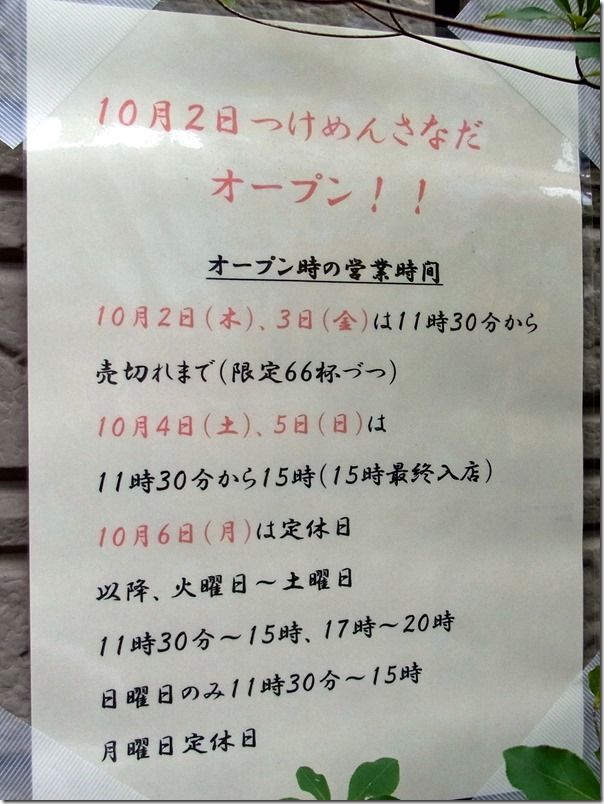 10月2日つけめんさなだ
オープン！！
オープン時の営業時間
10月2日(木)、3日(金)は11時30分から
売切れまで(限定66杯づつ)
10月4日(土)、5日(日)は
11時30分から15時(15時最終入店)
10月6日(月)は定休日
以降、火曜日～土曜日
11時30分～15時、17時～20時
日曜日のみ11時30分～15時
月曜日定休日